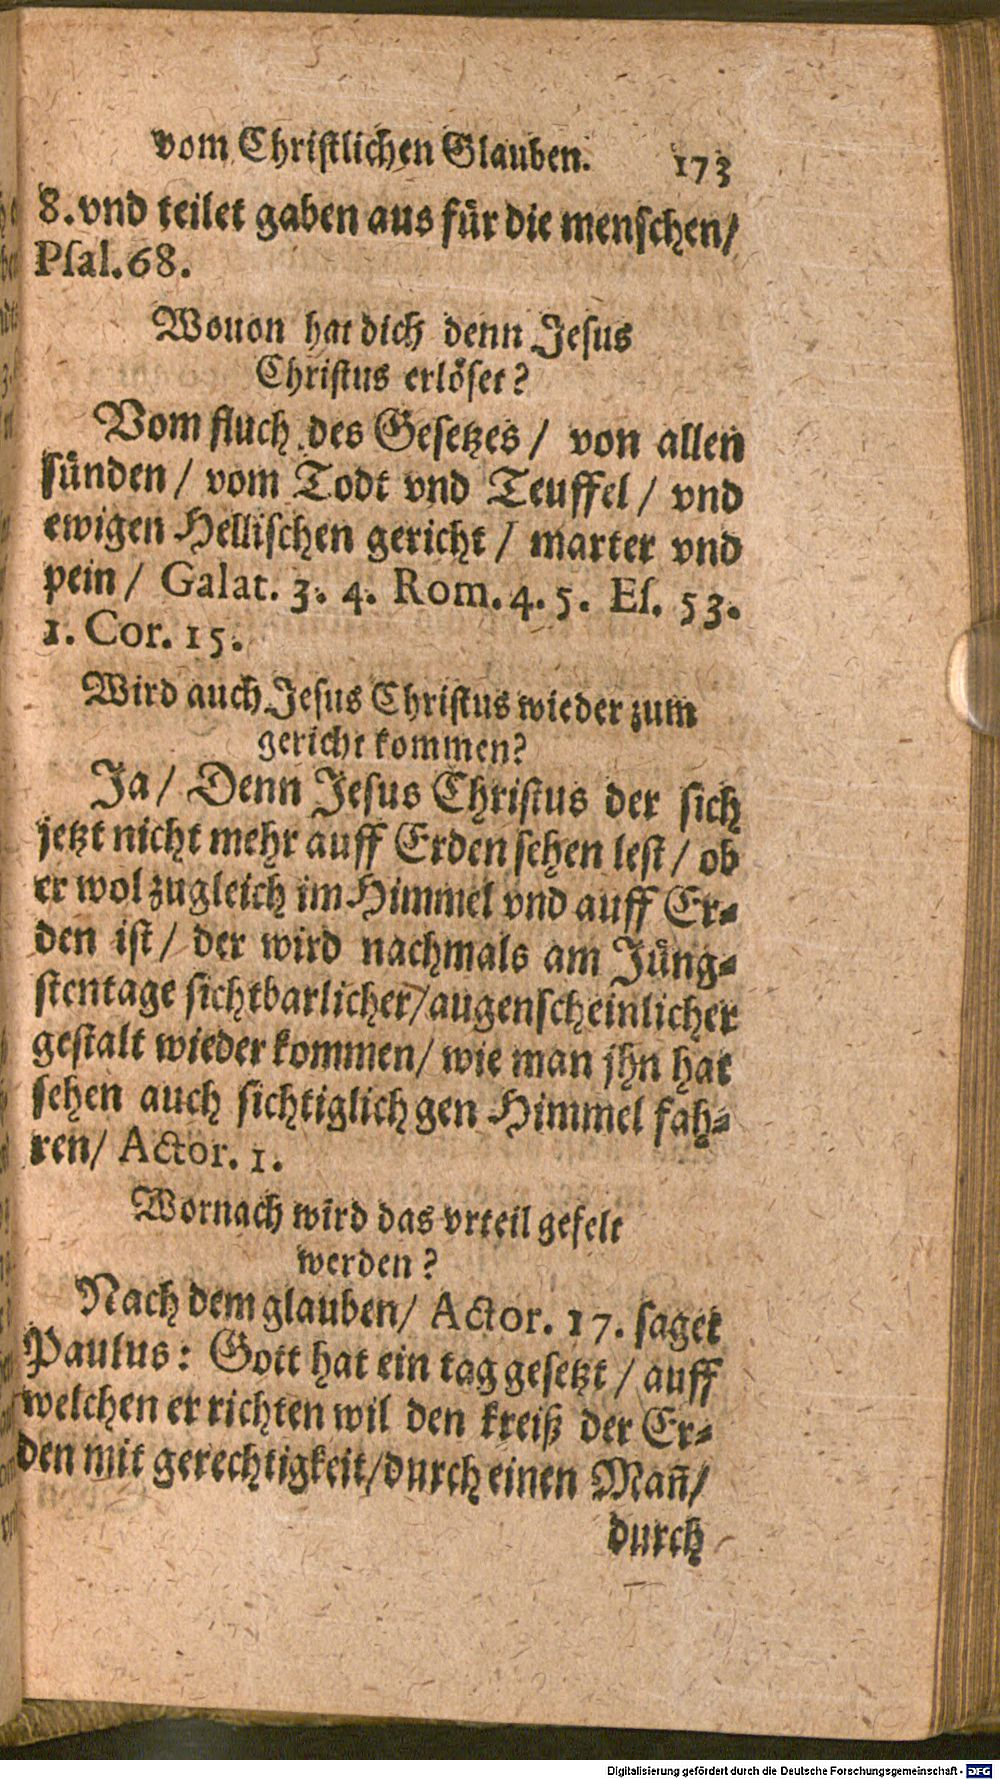 vom Christlichen Glauben. 173
8. vnd teilet gaben aus für die menschen/
Psal. 68.
Wouon hat dich denn Jesus
Christus erlöset?
Vom fluch des Gesetzes / von allen
sünden / vom Todt vnd Teuffel / vnd
ewigen Hellischen gericht / marter vnd
pein / Galat. 3. 4. Rom. 4. 5. Es. 53.
1. Cor. 15.
Wird auch Jesus Christus wieder zum
gericht kommen?
Ja / Denn Jesus Christus der sich
jetzt nicht mehr auff Erden sehen lest / ob
er wol zugleich im Himmel vnd auff Er-
den ist / der wird nachmals am Jüng-
stentage sichtbarlicher/augenscheinlicher
gestalt wieder kommen/ wie man jhn hat
sehen auch sichtiglich gen Himmel fah-
ren/ Actor. 1.
Wornach wird das vrteil gefelt
werden?
Nach dem glauben/ Actor. 17. saget
Paulus: Gott hat ein tag gesetzt / auff
welchen er richten wil den kreiß der Er-
den mit gerechtigkeit/durch einen Mañ/
durch
Digitalisierung gefördert durch die Deutsche Forschungsgemeinschaft - DFG